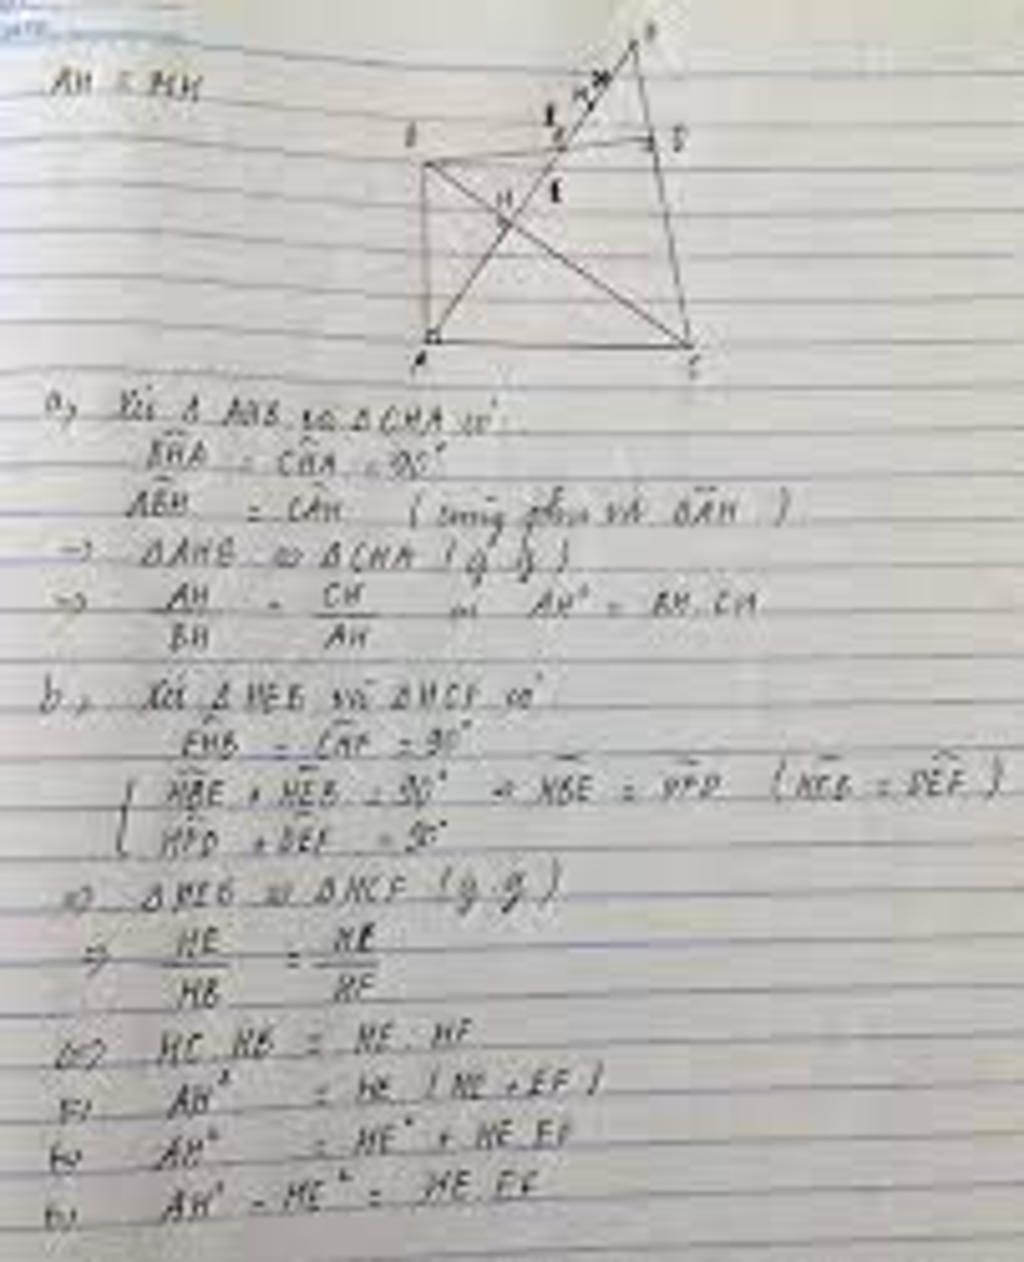 AH = MH
B
E
D
H
A
C
a, Xét Δ AHB và Δ CHA có:
BHA = CHA = 90°
ABH = CAH ( cùng phụ với BAH )
=> ΔAHB ∽ ΔCHA (g.g)
=> AH / BH = CH / AH => AH² = BH . CH
b, Xét Δ HEB và Δ HCF có
EHB = CHF = 90°
HBE + HEB = 90° => HBE = HFD ( HEB = DEF )
HFD + DEF = 90°
=> Δ HEB ∽ Δ HCF (g.g)
=> HE / HB = HC / HF
<=> HC . HB = HE . HF
<=> AH² = HE ( HE + EF )
<=> AH² = HE² + HE . EF
<=> AH² - HE² = HE . EF